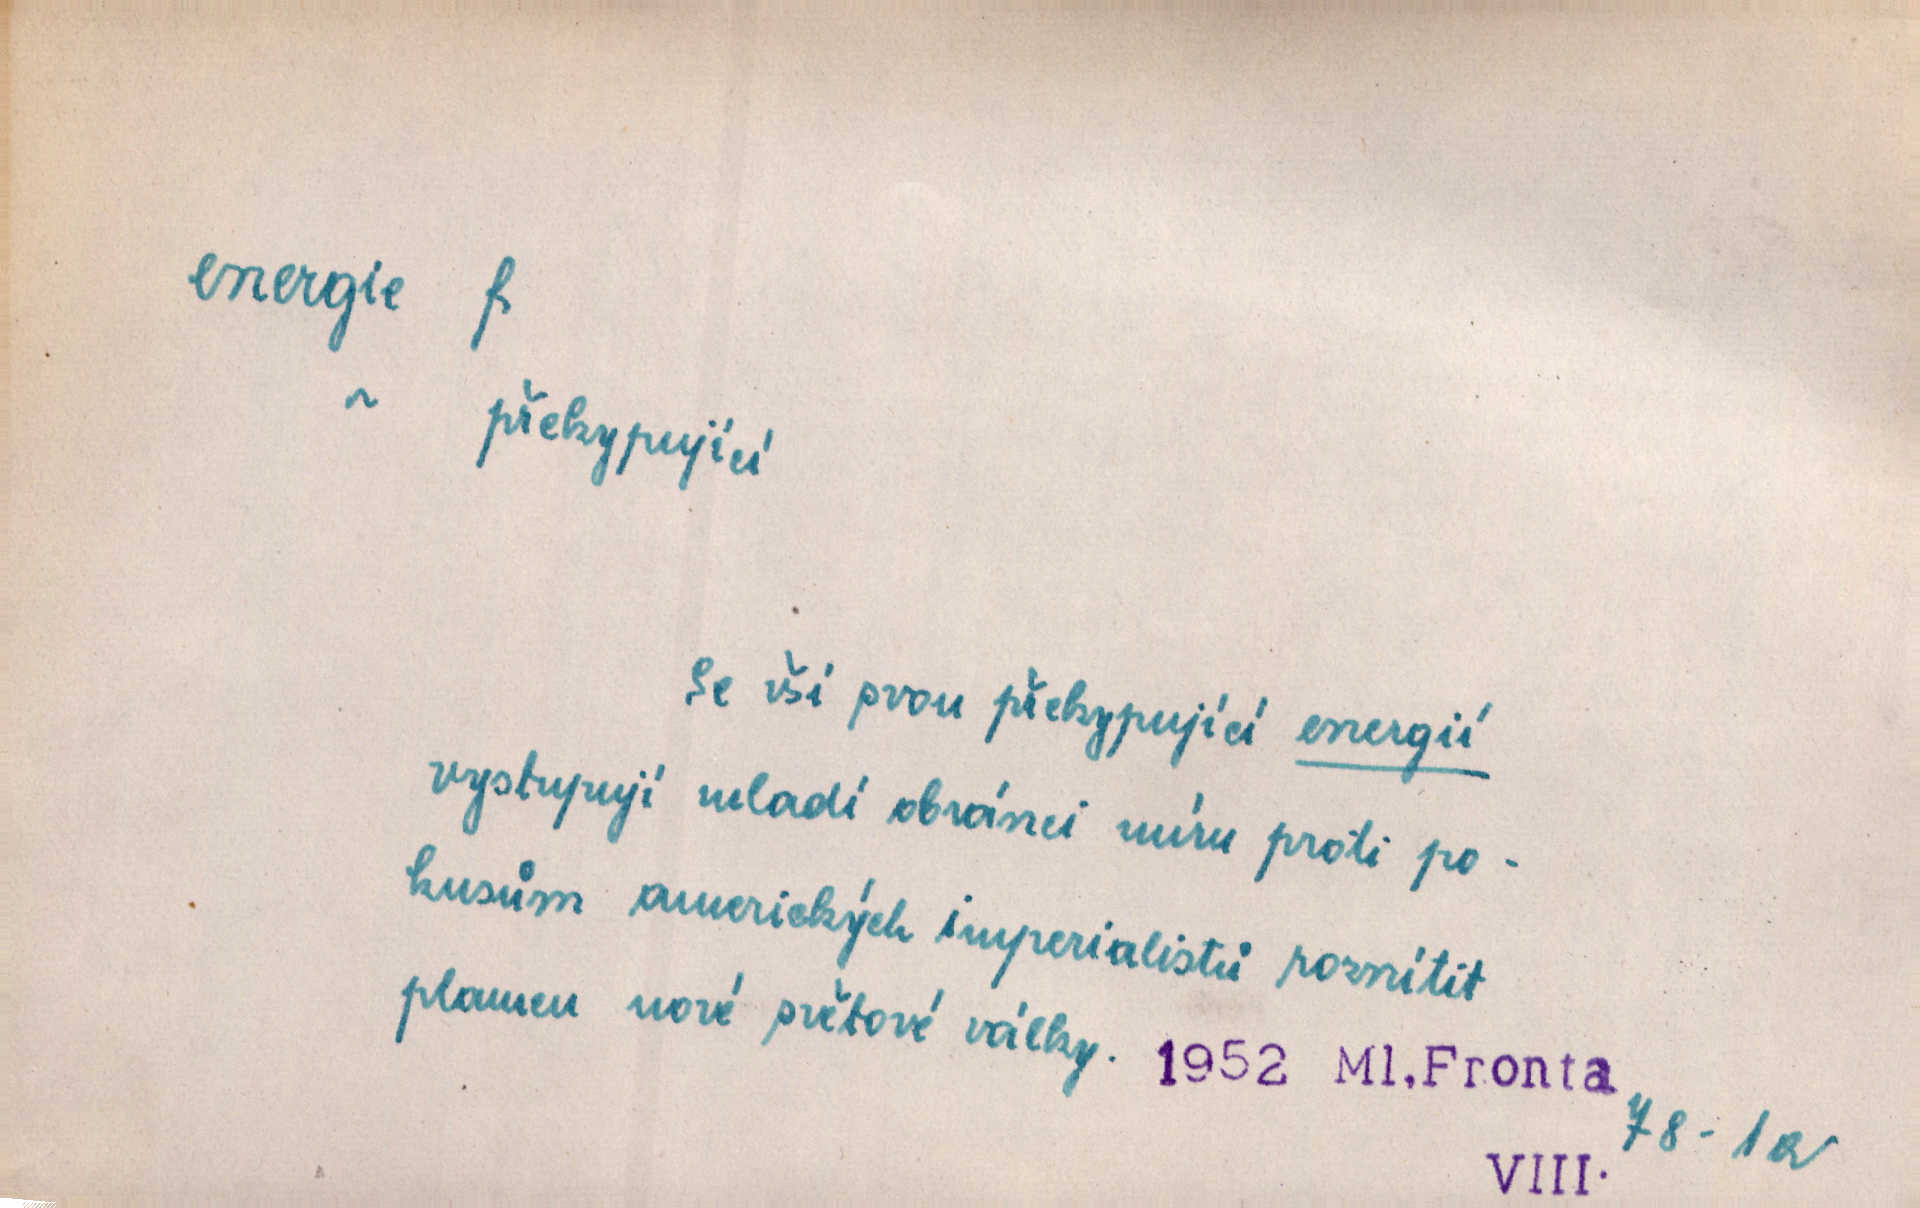 energie f
~ překypující
Se vší svou překypující energií
vystupují mladí obránci míru proti po-
kusům amerických imperialistů roznítit
plamen nové světové války. 1952 Ml.Fronta
78-1a
VIII.